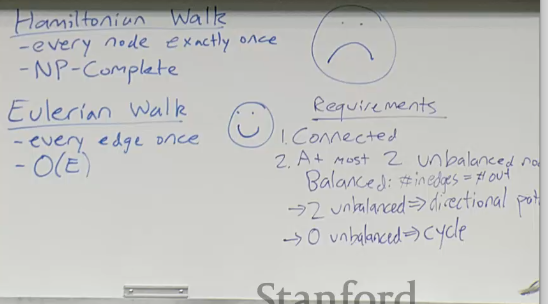 Hamiltonian Walk
-every node exactly once
-NP-Complete
Eulerian Walk
-every edge once
- O(E)
Requirements
1. Connected
2. At most 2 unbalanced no
Balanced: #inedges = #out
→ 2 unbalanced ⇒ directional pat
→ 0 unbalanced ⇒ cycle
Stanford